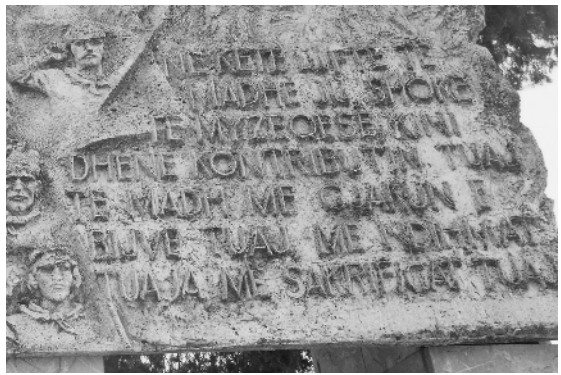 NE KETE LUFTE TE
MADHE JU SHOKE
TE MYZEQESE KINI
DHENE KONTRIBUTIN TUAJ
TE MADH ME GJAKUN E
BIJVE TUAJ ME NDIHMAT
TUAJA ME SAKRIFICAT TUAJA